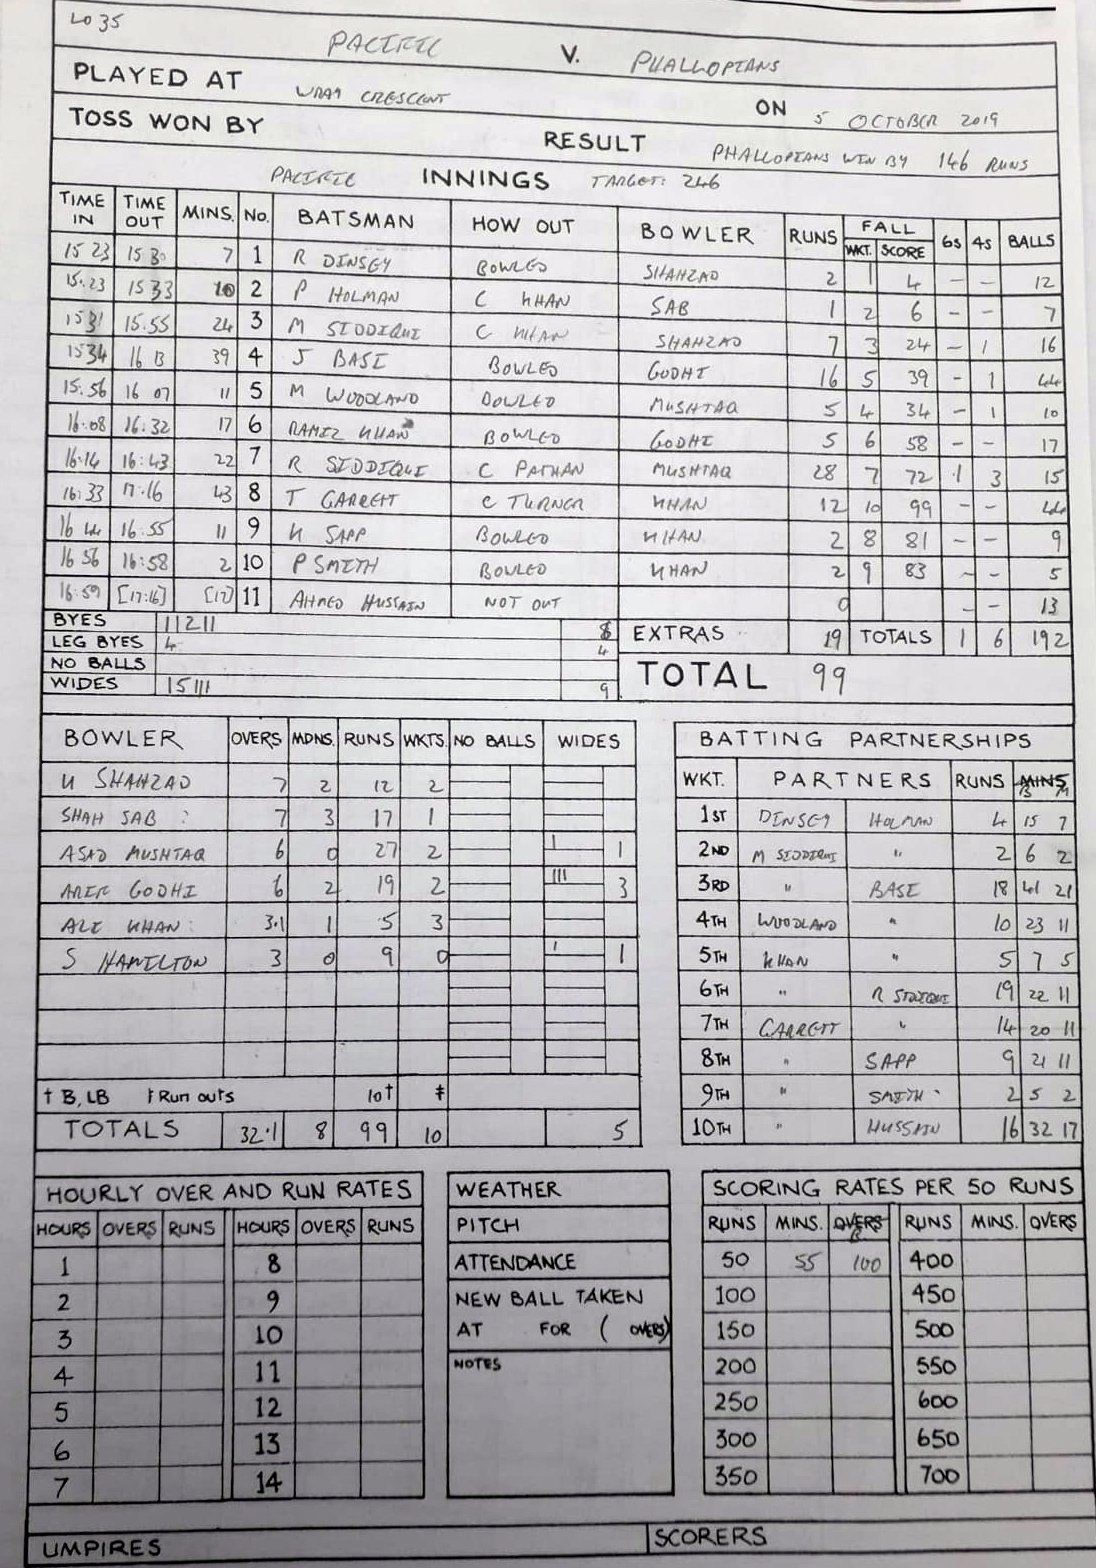 LO 35
PACIFIC V. PHALLOPIANS
PLAYED AT WRAY CRESCENT ON 5 OCTOBER 2019
TOSS WON BY RESULT PHALLOPIANS WIN BY 146 RUNS
PACIFIC INNINGS TARGET: 246
TIME IN TIME OUT MINS. No. BATSMAN HOW OUT BOWLER RUNS FALL WKT. SCORE 6s 4s BALLS
15 23 15 30 7 1 R DINSEY BOWLED SHAHZAD 2 1 4 - - 12
15.23 15 33 10 2 P HOLMAN C KHAN SAB 1 2 6 - - 7
15 31 15.55 24 3 M SIDDIQUI C KHAN SHAHZAD 7 3 24 - 1 16
15 34 16 13 39 4 J BASE BOWLED GODHI 16 5 39 - 1 44
15.56 16 07 11 5 M WOODLAND BOWLED MUSHTAQ 5 4 34 - 1 10
16:08 16:32 17 6 RAMIZ KHAN BOWLED GODHI 5 6 58 - - 17
16:14 16:43 22 7 R SIDDIQUI C PATHAN MUSHTAQ 28 7 72 1 3 15
16:33 17:16 43 8 T GARRETT C TURNER KHAN 12 10 99 - - 44
16 44 16:55 11 9 K SAPP BOWLED KHAN 2 8 81 - - 9
16 56 16:58 2 10 P SMITH BOWLED KHAN 2 9 83 - - 5
16:59 [17:16] [17] 11 AHMED HUSSAIN NOT OUT 0 - - 13
BYES 11211 6 EXTRAS 19 TOTALS 1 6 192
LEG BYES 4 4
NO BALLS TOTAL 99
WIDES 15111 9
BOWLER OVERS MDNS. RUNS WKTS. NO BALLS WIDES
K SHAHZAD 7 2 12 2
SHAH SAB 7 3 17 1
ASAD MUSHTAQ 6 0 27 2 1
ARIF GODHI 6 2 19 2 3
ALI KHAN 3.1 1 5 3
S HAMILTON 3 0 9 0 1
† B, LB † Run outs 10† ‡
TOTALS 32.1 8 99 10 5
BATTING PARTNERSHIPS
WKT. PARTNERS RUNS MINS B M
1ST DINSEY HOLMAN 4 15 7
2ND M SIDDIQUI " 2 6 2
3RD " BASE 18 41 21
4TH WOODLAND " 10 23 11
5TH KHAN " 5 7 5
6TH " R SIDDIQUI 19 22 11
7TH GARRETT " 14 20 11
8TH " SAPP 9 21 11
9TH " SMITH 2 5 2
10TH " HUSSAIN 16 32 17
HOURLY OVER AND RUN RATES
HOURS OVERS RUNS HOURS OVERS RUNS
1 8
2 9
3 10
4 11
5 12
6 13
7 14
WEATHER
PITCH
ATTENDANCE
NEW BALL TAKEN
AT FOR ( OVERS)
NOTES
SCORING RATES PER 50 RUNS
RUNS MINS. OVERS B RUNS MINS. OVERS
50 55 100 400
100 450
150 500
200 550
250 600
300 650
350 700
UMPIRES SCORERS